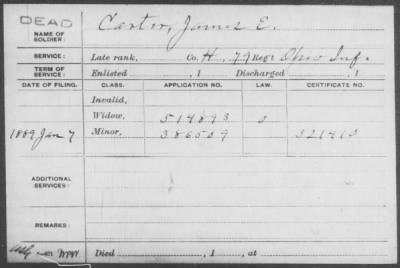 DEAD
NAME OF SOLDIER: Carter, James E.
SERVICE: Late rank, Co. H, 79 Reg't Ohio Inf.
TERM OF SERVICE: Enlisted , 1 Discharged , 1
DATE OF FILING. CLASS. APPLICATION NO. LAW. CERTIFICATE NO.
Invalid,
Widow, 514893
1889 Jan 7 Minor, 386509 321413
ADDITIONAL SERVICES:
REMARKS:
Died , 1 , at